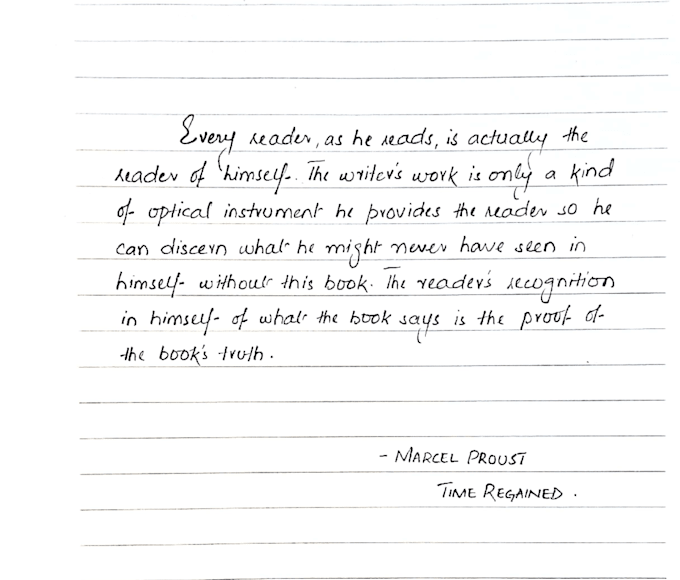 Every reader, as he reads, is actually the
reader of himself. The writer's work is only a kind
of optical instrument he provides the reader so he
can discern what he might never have seen in
himself without this book. The reader's recognition
in himself of what the book says is the proof of
the book's truth.
- MARCEL PROUST
TIME REGAINED.